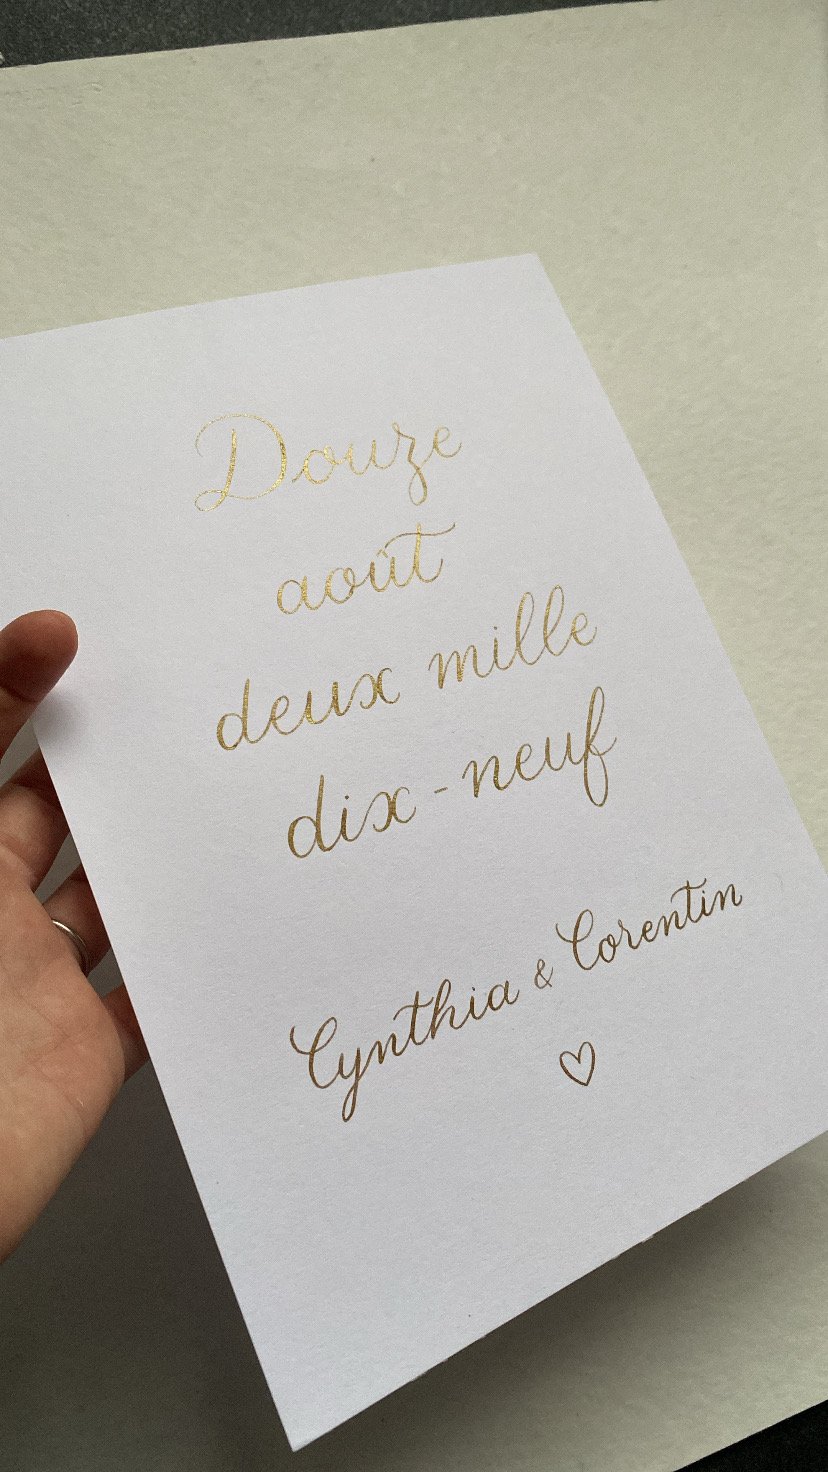 Douze
août
deux mille
dix-neuf
Cynthia & Corentin
♡